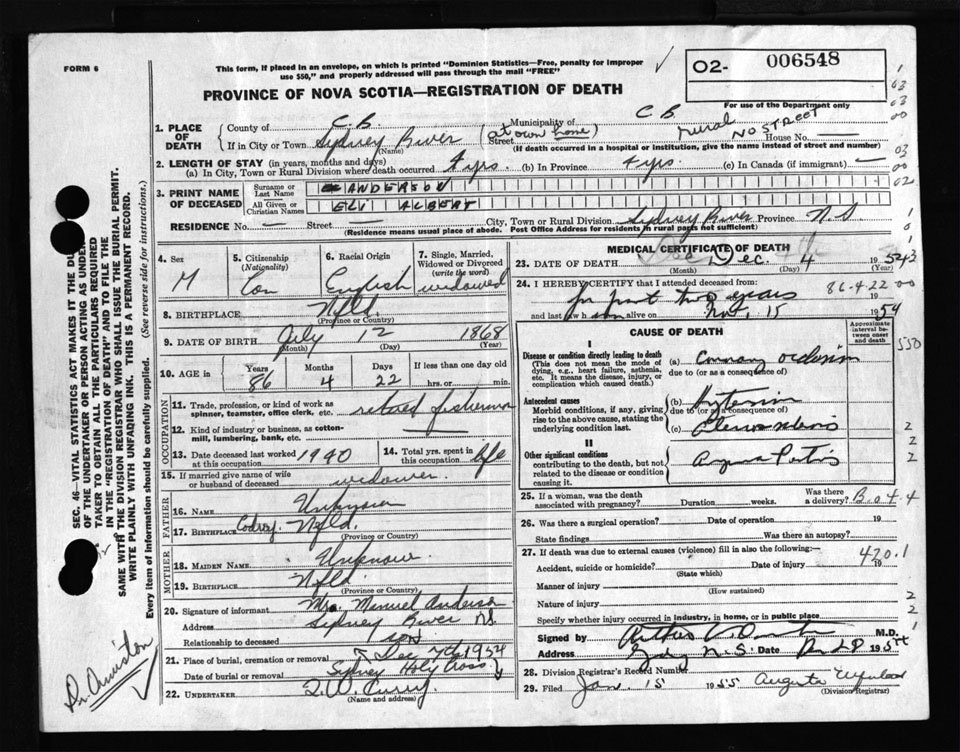 FORM 6
This form, if placed in an envelope, on which is printed "Dominion Statistics—Free, penalty for improper
use $50," and properly addressed will pass through the mail "FREE"
O2- 006548
For use of the Department only
PROVINCE OF NOVA SCOTIA—REGISTRATION OF DEATH
1. PLACE OF DEATH
County of C.B. Municipality of C B
If in City or Town Sydney River (Name) Street (at own home) rural NO STREET House No. —
(If death occurred in a hospital or institution, give the name instead of street and number)
2. LENGTH OF STAY (in years, months and days)
(a) In City, Town or Rural Division where death occurred 4 yrs. (b) In Province 4 yrs. (c) In Canada (if immigrant) —
3. PRINT NAME OF DECEASED
Surname or Last Name ANDERSON
All Given or Christian Names ELI ALBERT
RESIDENCE No. — Street — City, Town or Rural Division Sydney River Province N.S
(Residence means usual place of abode. Post Office Address for residents in rural parts not sufficient)
4. Sex M
5. Citizenship (Nationality) Can
6. Racial Origin English
7. Single, Married, Widowed or Divorced (write the word) widowed
8. BIRTHPLACE Nfld. (Province or Country)
9. DATE OF BIRTH July 12 1868
(Month) (Day) (Year)
10. AGE in Years 86 Months 4 Days 22 If less than one day old hrs. or min.
OCCUPATION
11. Trade, profession, or kind of work as spinner, teamster, office clerk, etc. retired fisherman
12. Kind of industry or business, as cotton-mill, lumbering, bank, etc. —
13. Date deceased last worked at this occupation 1940
14. Total yrs. spent in this occupation life
15. If married give name of wife or husband of deceased widower.
FATHER
16. Name Unknown
17. Birthplace Codroy. Nfld.
(Province or Country)
MOTHER
18. MAIDEN NAME Unknown.
19. BIRTHPLACE Nfld
(Province or Country)
20. Signature of informant Mrs. Manuel Anderson
Address Sydney River NS
Relationship to deceased son
21. Place of burial, cremation or removal Dec 7th 1954
Date of burial or removal Sydney Holy Cross
22. UNDERTAKER T.W. Curry
(Name and address)
MEDICAL CERTIFICATE OF DEATH
23. DATE OF DEATH Dec. 4 1954
(Month) (Day) (Year)
24. I HEREBY CERTIFY that I attended deceased from: 86-4-22
for past two years 19
and last saw h Nov. 15 1954
CAUSE OF DEATH
Approximate interval between onset and death
I
Disease or condition directly leading to death
(This does not mean the mode of dying, e.g., heart failure, asthenia, etc. It means the disease, injury, or complication which caused death.)
(a)
due to (or as a consequence of)
Antecedent causes
Morbid conditions, if any, giving rise to the above cause, stating the underlying condition last.
(b)
due to (or as a consequence of)
(c)
II
Other significant conditions
contributing to the death, but not related to the disease or condition causing it.
25. If a woman, was the death associated with pregnancy? Duration weeks. Was there a delivery? B.o.4.4
26. Was there a surgical operation? Date of operation 19
State findings Was there an autopsy?
27. If death was due to external causes (violence) fill in also the following:—
420.1
Accident, suicide or homicide? Date of injury 19
(State which)
Manner of injury
(How sustained)
Nature of injury
Specify whether injury occurred in industry, in home, or in public place
Signed by M.D.
Address Sydney N.S. Date
28. Division Registrar's Record Number
29. Filed Jan. 15 1955 Augusta
(Division Registrar)
SEC. 46—VITAL STATISTICS ACT MAKES IT THE
OF THE UNDERTAKER OR PERSON ACTING AS UNDER-
TAKER TO OBTAIN ALL THE PARTICULARS REQUIRED
IN THE "REGISTRATION OF DEATH" AND TO FILE THE
SAME WITH THE DIVISION REGISTRAR WHO SHALL ISSUE THE BURIAL PERMIT.
WRITE PLAINLY WITH UNFADING INK. THIS IS A PERMANENT RECORD.
Every item of information should be carefully supplied. (See reverse side for instructions.)